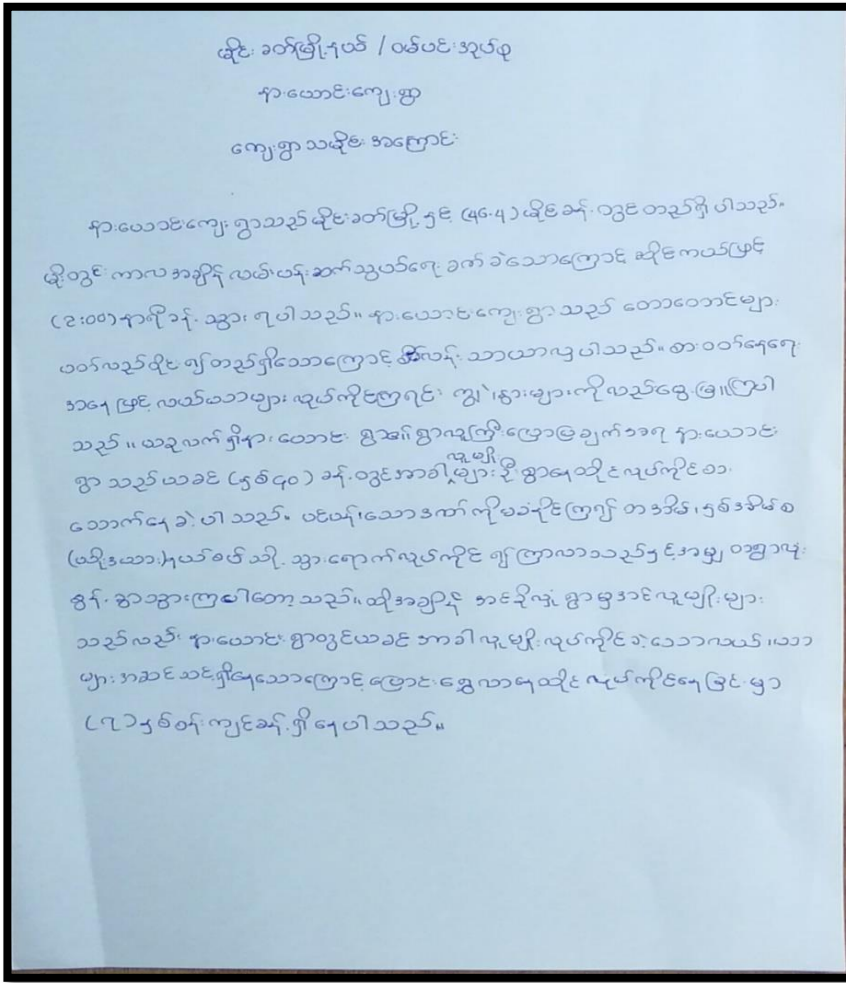 မိုင်းခတ်မြို့နယ် / ဝမ်ပင်းအုပ်စု
နားယောင်းကျေးရွာ
ကျေးရွာသမိုင်းအကြောင်း
နားယောင်းကျေးရွာသည် မိုင်းခတ်မြို့နှင့် (၄၆.၄) မိုင်ခန့်တွင်တည်ရှိပါသည်။
မိုးတွင်းကာလအချိန် လမ်းပန်းဆက်သွယ်ရေးခက်ခဲသောကြောင့် ဆိုင်ကယ်ဖြင့်
(၃:၀၀) နာရီခန့် သွားရပါသည်။ နားယောင်းကျေးရွာသည် တောတောင်များ
ပတ်လည်ဝိုင်း၍တည်ရှိသောကြောင့် စိမ်းလန်းသာယာလှပါသည်။ စားဝတ်နေရေး
အနေဖြင့် လယ်ယာများလုပ်ကိုင်ကြရင်း ကျွဲ၊နွားများကိုလည်းမွေးမြူကြပါ
သည်။ ယခုလက်ရှိနားယောင်းရွာ၏ရွာလူကြီးပြောပြချက်အရ နားယောင်း
ရွာသည်ယခင် (နှစ်၄၀) ခန့်တွင်အာခါလူမျိုးများဦးစွာနေထိုင်လုပ်ကိုင်စား
သောက်နေခဲ့ပါသည်။ ပင်ပန်းသောဒဏ်ကိုမခံနိုင်ကြ၍ တအိမ်၊နှစ်အိမ်စ
(ထိုးဒယား)နယ်စပ်သို့ သွားရောက်လုပ်ကိုင်၍ကြာလာသည်နှင့်အမျှ တရွာလုံး
စွန့်ခွာသွားကြပါတော့သည်။ ထိုအချိန် အင်ဒိုလုံရွာမှအင်လူမျိုးများ
သည်လည်း နားယောင်းရွာတွင်ယခင်အာခါလူမျိုးလုပ်ကိုင်ခဲ့သောလယ်၊ယာ
များအဆင်သင့်ရှိနေသောကြောင့် ပြောင်းရွှေ့လာနေထိုင်လုပ်ကိုင်နေခြင်းမှာ
(၇)နှစ်ဝန်းကျင်ခန့်ရှိနေပါသည်။